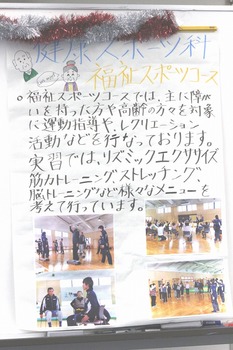 健康スポーツ科
福祉スポーツコース
。福祉スポーツコースでは、主に障が
いを持った方や高齢の方々を対象
に運動指導や、レクリエーション
活動などを行なっております。
実習では、リズミックエクササイズ
筋力トレーニング、ストレッチング、
脳トレーニングなど様々なメニューを
考えて行っています。